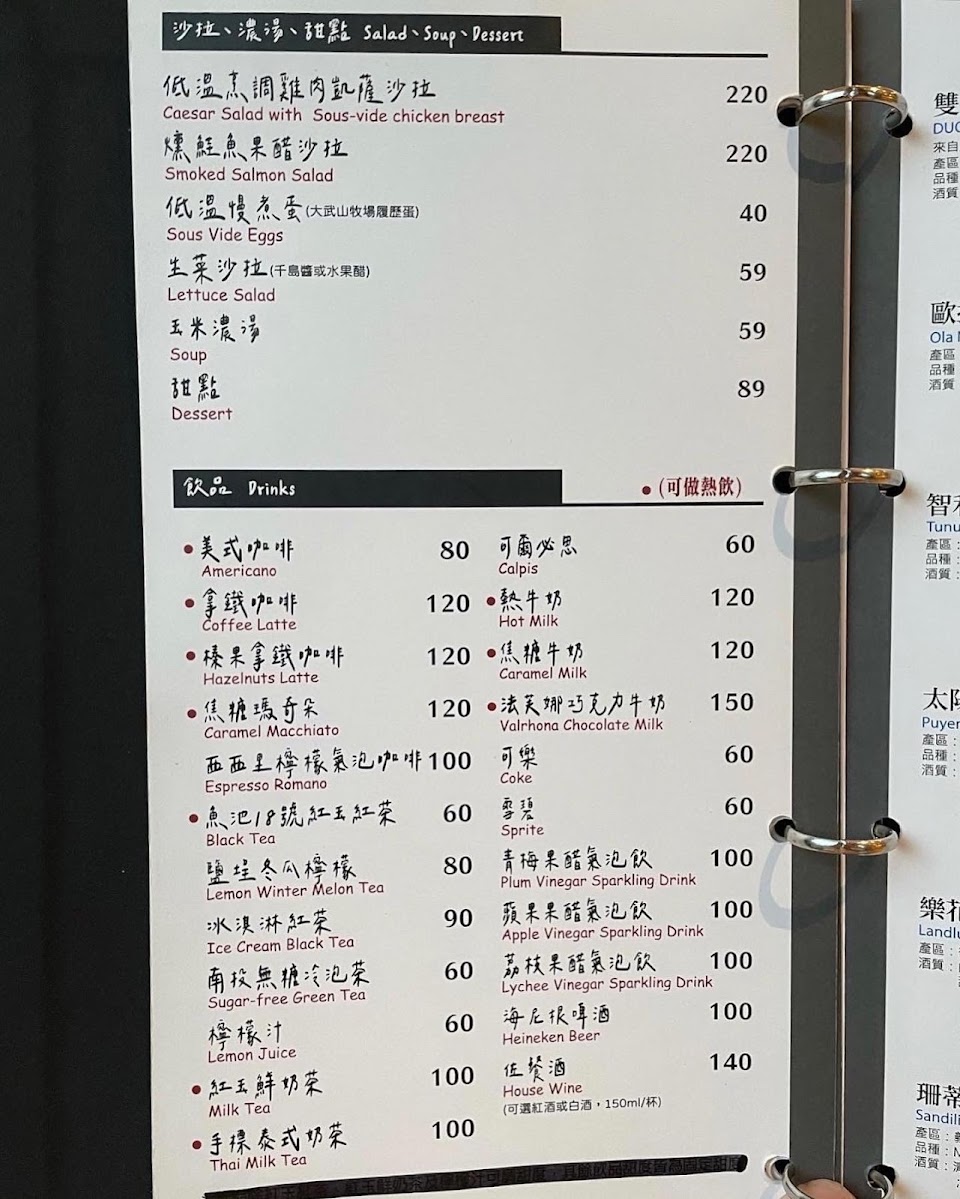 沙拉、濃湯、甜點 Salad、Soup、Dessert
低溫烹調雞肉凱薩沙拉 220
Caesar Salad with Sous-vide chicken breast
燻鮭魚果醋沙拉 220
Smoked Salmon Salad
低溫慢煮蛋(大武山牧場履歷蛋) 40
Sous Vide Eggs
生菜沙拉(千島醬或水果醋) 59
Lettuce Salad
玉米濃湯 59
Soup
甜點 89
Dessert
飲品 Drinks
•(可做熱飲)
•美式咖啡 80
Americano
•拿鐵咖啡 120
Coffee Latte
•榛果拿鐵咖啡 120
Hazelnuts Latte
•焦糖瑪奇朵 120
Caramel Macchiato
西西里檸檬氣泡咖啡 100
Espresso Romano
•魚池18號紅玉紅茶 60
Black Tea
鹽埕冬瓜檸檬 80
Lemon Winter Melon Tea
冰淇淋紅茶 90
Ice Cream Black Tea
南投無糖冷泡茶 60
Sugar-free Green Tea
檸檬汁 60
Lemon Juice
•紅玉鮮奶茶 100
Milk Tea
•手標泰式奶茶 100
Thai Milk Tea
可爾必思 60
Calpis
•熱牛奶 120
Hot Milk
•焦糖牛奶 120
Caramel Milk
•法芙娜巧克力牛奶 150
Valrhona Chocolate Milk
可樂 60
Coke
雪碧 60
Sprite
青梅果醋氣泡飲 100
Plum Vinegar Sparkling Drink
蘋果果醋氣泡飲 100
Apple Vinegar Sparkling Drink
荔枝果醋氣泡飲 100
Lychee Vinegar Sparkling Drink
海尼根啤酒 100
Heineken Beer
佐餐酒 140
House Wine
(可選紅酒或白酒，150ml/杯)
雙
來自
產區
品種
酒質
歐
Ola
產區
品種
酒質
智利
Tunu
產區：
品種：
酒質：
太陽
Puyen
產區：
品種：
酒質：
樂花
產區：
酒質：
珊蒂
產區：
品種：
酒質：